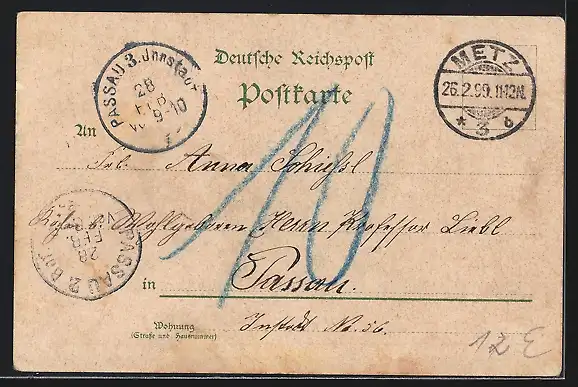 Deutsche Reichspost
Postkarte
PASSAU 3. Innstadt
28
FEB
9-10
METZ
26.2.99. 11-12N.
* 3 b
An
Frl. Anna Schießl
b. Wohlgeboren Herrn Professor Liebl
10
PASSAU 2 Bhf
28
FEB
in Passau.
Wohnung
(Straße und Hausnummer)
Instadt No. 56.
12 E